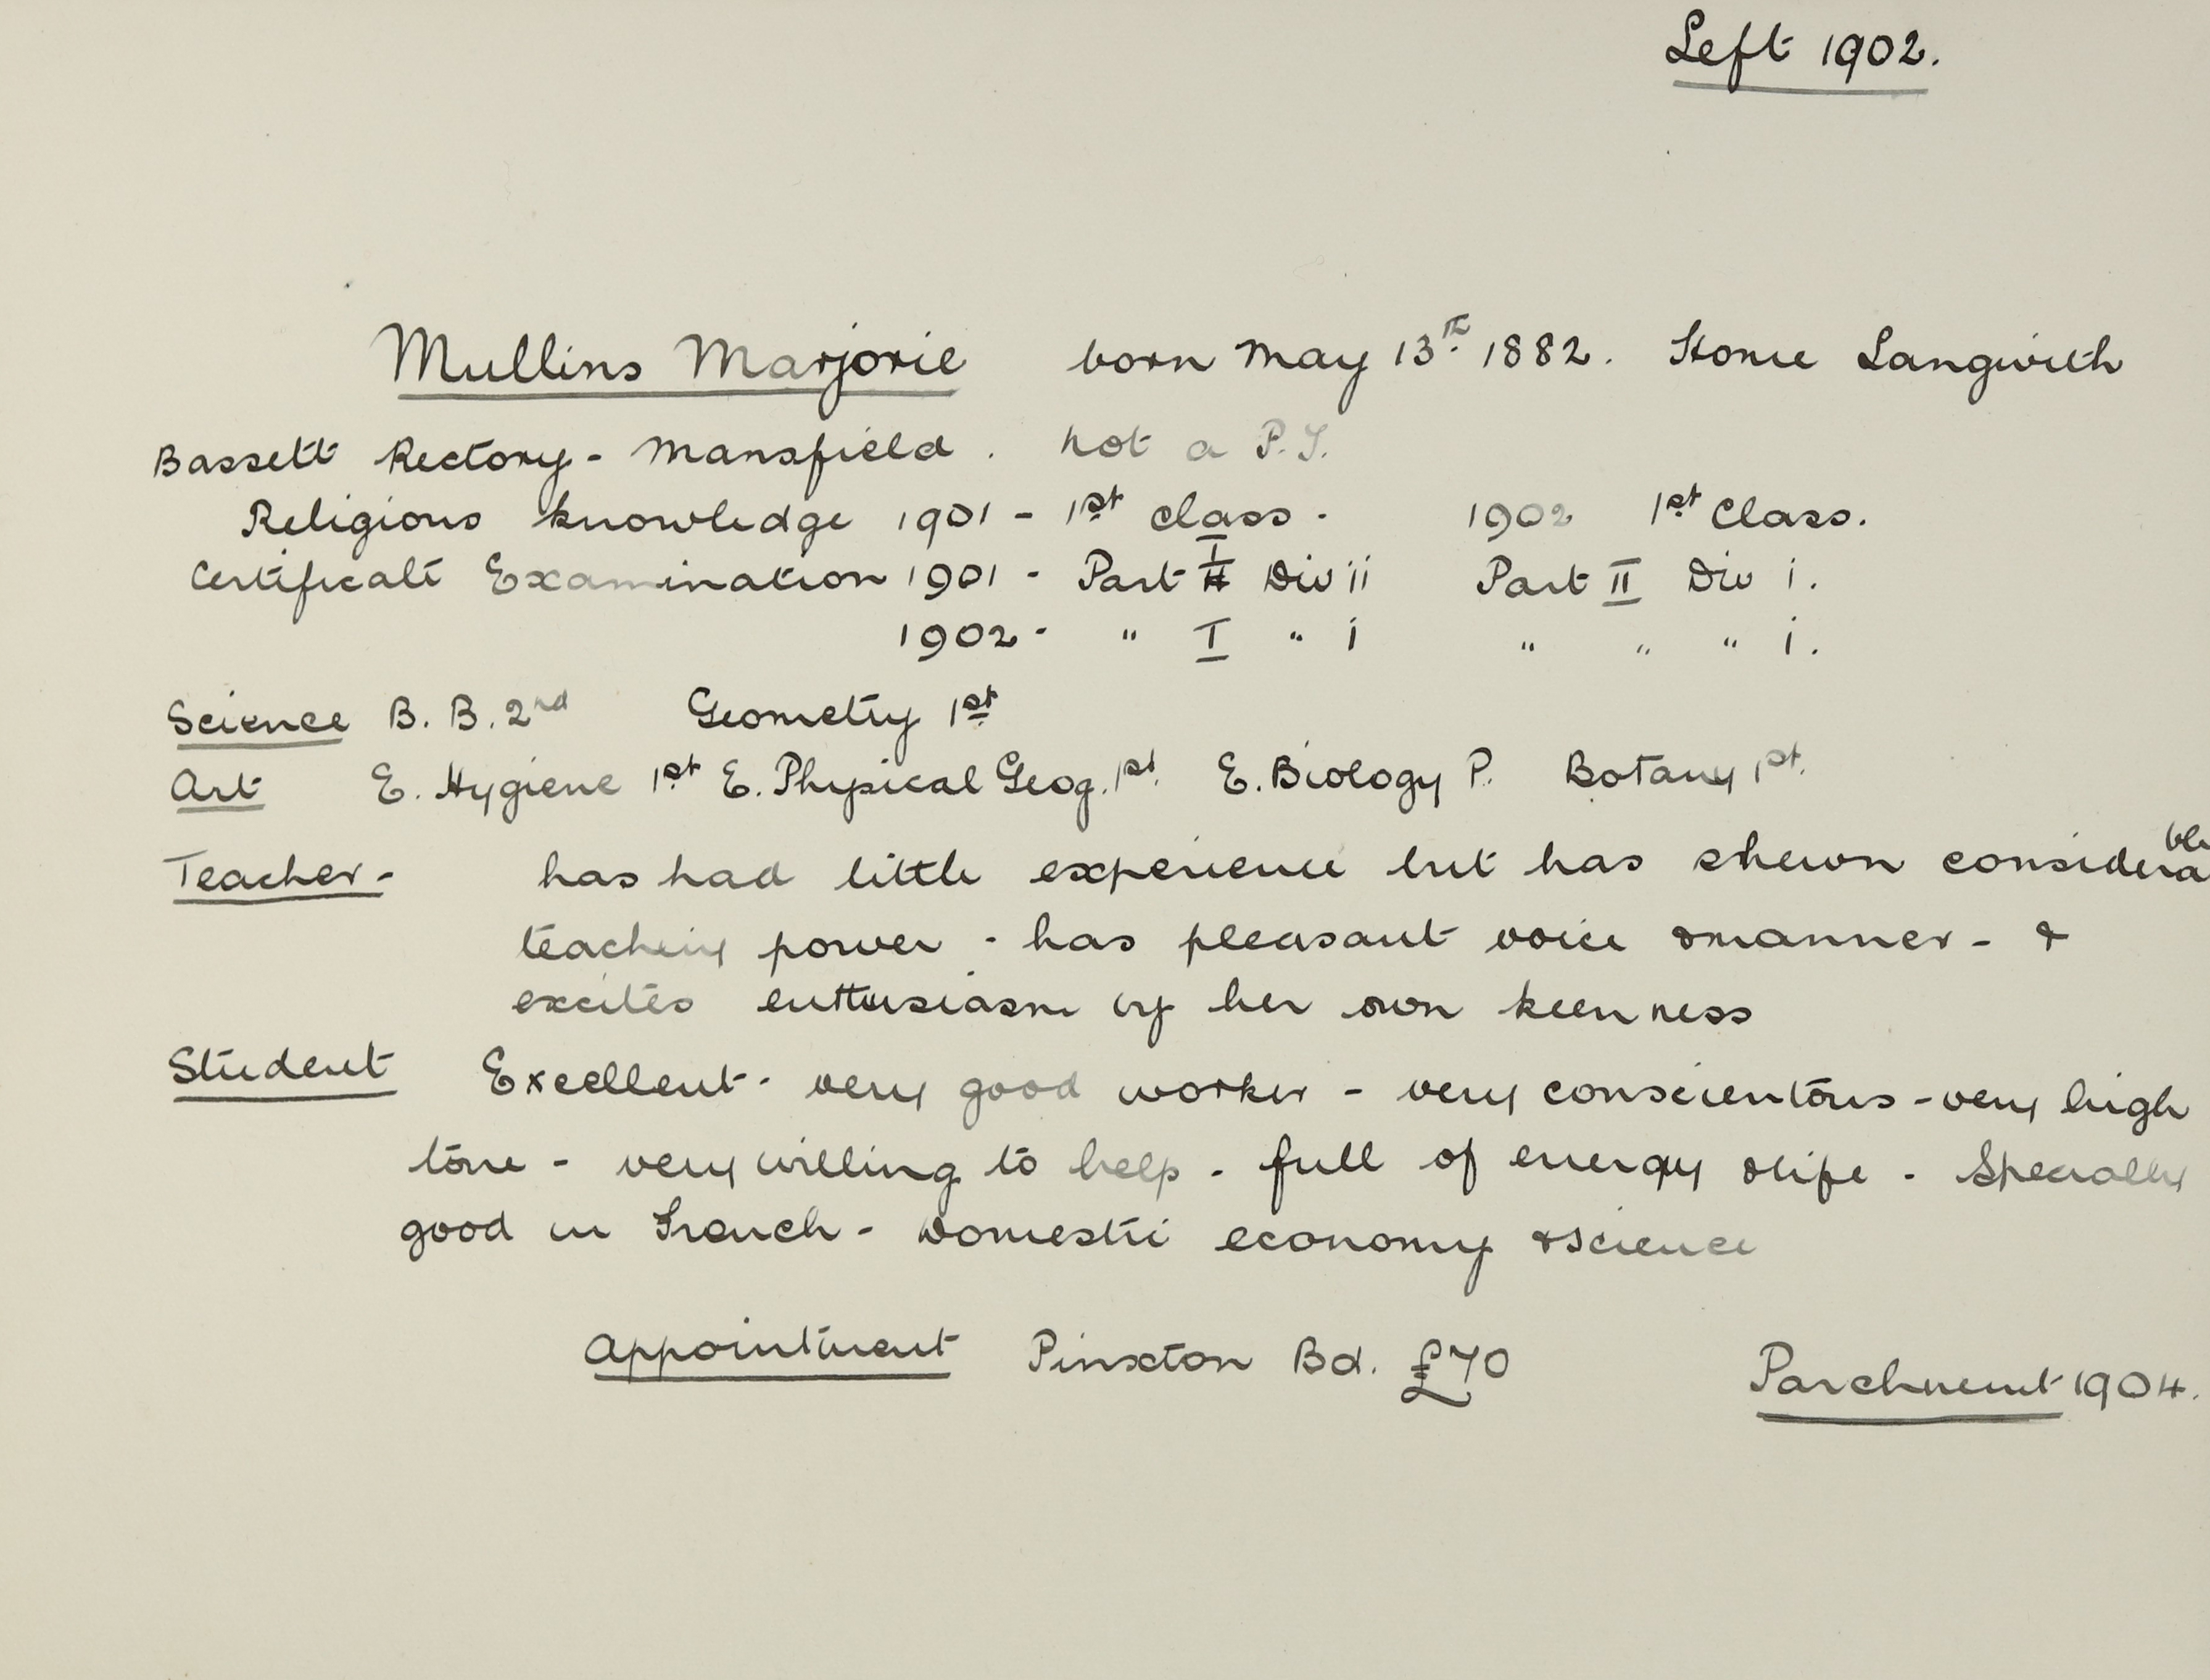 Left 1902.
Mullins Marjorie born May 13th 1882. Home Langwith
Bassett Rectory - Mansfield. not a P.T.
Religious knowledge 1901 - 1st class. 1902 1st Class.
Certificate Examination 1901 - Part I Div ii Part II Div i.
1902 - " I " i " " " i.
Science B. B. 2nd Geometry 1st
Art E. Hygiene 1st E. Physical Geog. 1st. E. Biology P. Botany 1st.
Teacher - has had little experience but has shewn considerable
teaching power - has pleasant voice & manner - &
excites enthusiasm by her own keenness
Student Excellent - very good worker - very conscientous - very high
tone - very willing to help - full of energy & life - Specially
good in French - Domestic economy & science
Appointment Pinxton Bd. £70 Parchment 1904.